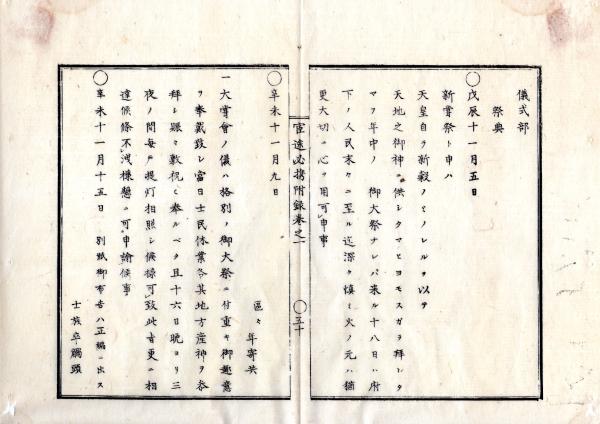 儀式部
祭典
◯戊辰十一月五日
新嘗祭ト申ハ
天皇自ラ新穀ノミノレルヲ以テ
天地之御神ニ供シタマヒヨモスガヲ拜シタ
マヲ年中ノ 御大祭ナレバ来ル十八日ハ府
下ノ人民末々ニ至ル迄深ク慎ミ火ノ元ハ猶
更大切ニ心ヲ用可申事
宣達必携附録卷之一
◯五十
◯辛未十一月九日
區々 年寄共
一大嘗會ノ儀ハ格別ノ御大祭ニ付重キ御趣意
ヲ奉戴致シ當日士民休業各其地方産神ヲ参
拜シ賑々敷祝シ奉ルベク且十六日晩ヨリ三
夜ノ間毎戸提灯相照シ候様可致此旨更ニ相
達候條不洩様懇ニ可申諭候事
◯辛未十一月十五日 別紙御布告ハ正編ニ出ス
士族卒觸頭